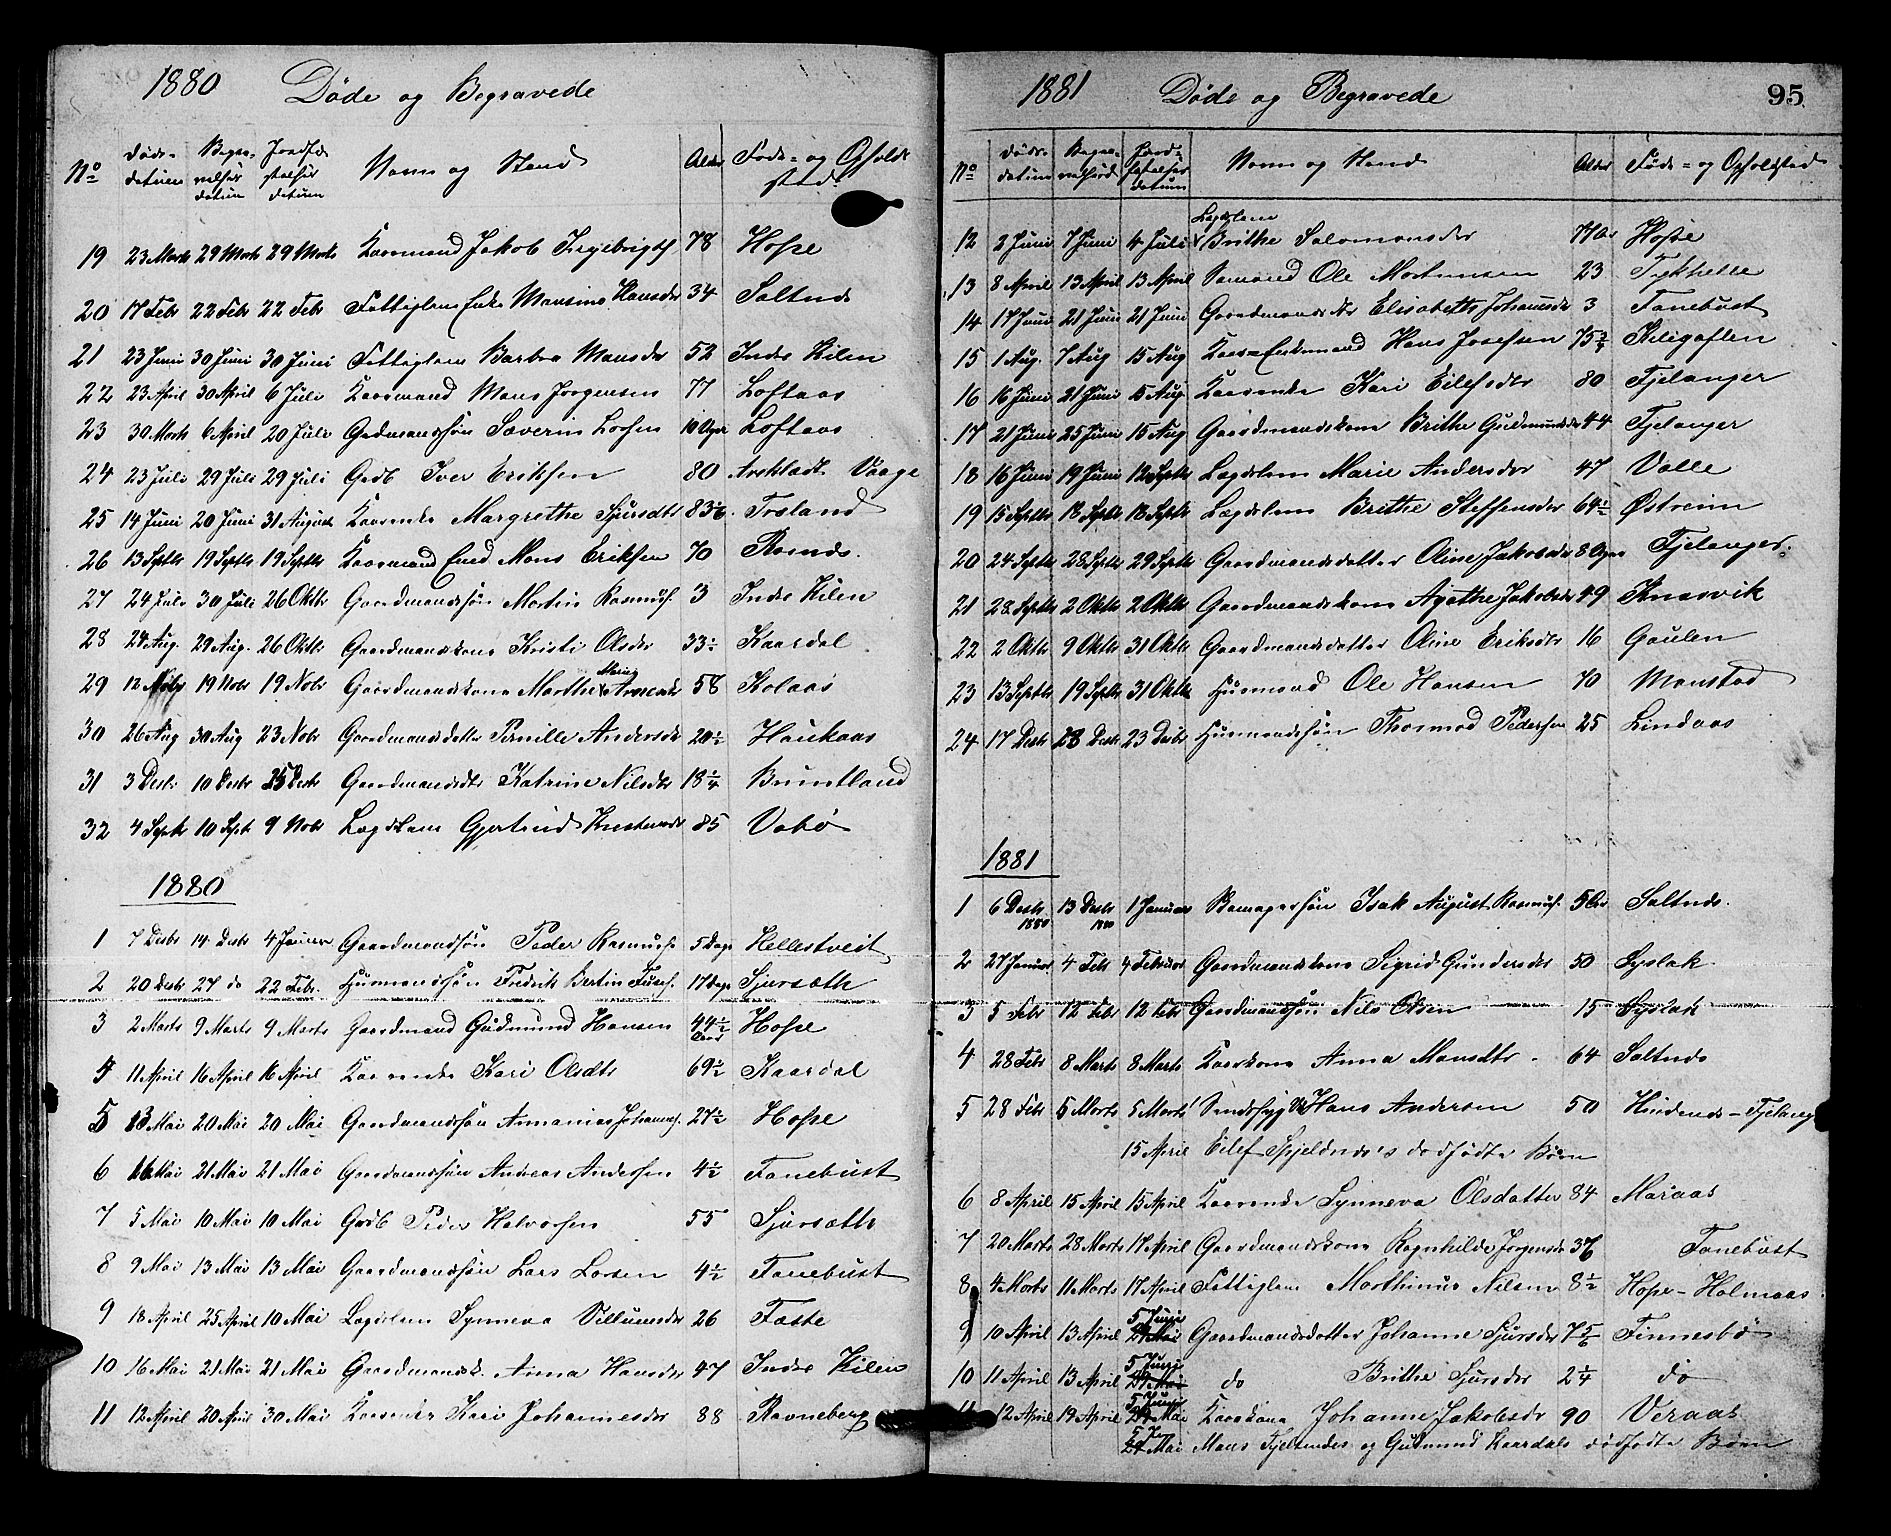 1880 Døde og Begravede
No Døds-datum Begravelses datum Jordfæstelses datum Navn og Stand Alder Føde- og Opholdssted
19 23 Marts 29 Marts 29 Marts Kaarmand Jakob 78 Hope
20 17 Febr 22 Febr 22 Febr Fattiglem Enke Monsine Hansdr 34 Saltnes
21 23 Juni 30 Juni 30 Juni Fattiglem Barbra Monsdr 52 Indre Kilen
22 23 April 30 April 6 Juli Kaarmand Mons Jørgensen 77 Loftaas
23 30 Marts 6 April 20 Juli Gaardmandssøn Severin Larsen 10 Uger Loftaas
24 23 Juli 29 Juli 29 Juli Grdb Iver Eriksen 80 Vaage
25 14 Juni 20 Juni 31 August Kaarenke Margrethe Sjursdtr 83½ Fosland
26 13 Septbr 19 Septbr 19 Septbr Kaarmand Mons Eriksen 70
27 24 Juli 30 Juli 26 Oktbr Gaardmandssøn Martin Rasmus. 3 Indre Kilen
28 24 Aug. 29 Aug. 26 Oktbr Gaardmandskone Kristi Olsdr 33½ Kaardal
29 12 Nobr 19 Nobr 19 Nobr Gaardmandskone Marthe Marie 58 Kolaas
30 26 Aug 30 Aug 23 Nobr Gaardmandsdatter Pernille Andersdr 20½ Haukaas
31 3 Desbr 10 Desbr Desbr Gaardmandsdtr Katrine Nilsdtr 18¼ Bruntland
32 4 Septr 10 Sept 9 Nobr Lægdslem Gjertrud 85 Vabø
1880
1 7 Desbr 14 Desbr 4 Januar Gaardmandssøn Peder Rasmus. 5 Dage Hellestveit
2 20 Desbr 27 do 22 Febr. Husmandssøn Fredrik Bertin 17 Dage Sjursæth
3 2 Marts 9 Marts 9 Marts Gaardmand Gudmund Hansen 44½ Aar Hope
4 11 April 16 April 16 April Kaarenke Kari Olsdtr 69½ Kaardal
5 13 Mai 20 Mai 20 Mai Gaardmandssøn Annanias Johannes. 27½ Hope
6 16 Mai 21 Mai 21 Mai Gaardmandssøn Andreas Andersen 4½ Fanebust
7 5 Mai 10 Mai 10 Mai Grdb Peder Halvorsen 55 Sjursæth
8 9 Mai 13 Mai 13 Mai Gaardmandssøn Lars Larsen 4½ Fanebust
9 18 April 25 April 10 Mai Lægdslem Synneva Villumsdr 26 Fæste
10 16 Mai 21 Mai 21 Mai Gaardmandsk. Anna Hansdr 47 Indre Kilen
11 12 April 20 April 30 Mai Kaarenke Kari Johannesdr 88 Ravneberg
1881 Døde og Begravede 95
No Døds-datum Begravelsesd. Jordfæstelses datum Navn og Stand Alder Føde- og Opholdsted
12 2 Juni 7 Juni 4 Juli Lægdslem Brithe Salomonsdr 77 Aar Hope
13 8 April 13 April 13 April Sømand Ole Mortensen 23
14 17 Juni 21 Juni 21 Juni Gaardmandsdtr Elisabeth Johannsdr 3 Fanebust
15 1 Aug. 7 Aug 15 Aug Kaar-Enkemand Hans Josefsen
16 16 Juni 21 Juni 15 Aug. Kaarenke Kari Eilefsdr 80 Fjelanger
17 21 Juni 25 Juni 15 Aug Gaardmandskone Brithe Gudmundsdr 44 Fjelanger
18 16 Juni 19 Juni 12 Septbr Lægdslem Marie Andersdr 47 Valle
19 15 Septbr 18 Septbr 18 Septbr Lægdslem Brithe Steffensdr 64½ Østreim
20 24 Septbr 28 Septbr 29 Septbr Gaardmandsdatter Oline Jakobsdr 8 Uger Fjelanger.
21 28 Septbr 2 Oktbr 2 Oktbr Gaardmandskone Agathe Jakobsdr 49 Knarvik
22 2 Oktbr 9 Oktbr 31 Oktbr Gaardmandsdatter Oline Eriksdr 16 Gaulen
23 13 Septbr 19 Septbr 31 Oktbr Husmand Ole Hansen 70 Monstad
24 17 Desbr 28 Desbr 23 Desbr Husmandssøn Thormod Pedersen 25 Lindaas
1881
1 6 Desbr 1880 13 Desbr 1880 1 Januar Isak August Rasmus. 5 Saltnes.
2 27 Januar 4 Febr 4 Februar Gaardmandskone Sigrid Gundersdr 50 Syslak
3 5 Febr 12 Febr 12 Febr Gaardmandssøn Nils Olsen 15 Syslak
4 28 Febr 8 Marts 8 Marts Kaarkone Anna Monsdtr. 64 Saltnes
5 28 Febr 5 Marts 5 Marts Hans Andersen 50 Hindenes - Fjelang
15 April Eilef Spjeldnes's dødfødte Børn
6 8 April 15 April 15 April Kaarenke Synneva Olsdatter 84 Maraas
7 20 Marts 28 Marts 17 April Gaardmandskone Ragnhilde Jørgensdr 36 Fanebust
8 4 Marts 11 Marts 17 April Fattiglem Marthinus Nilsen 8½ Hope - Holmaas.
9 10 April 13 April 5 Juni Gaardmandsdatter Johanne Sjursdr 7 5/6 Finnesbø
10 11 April 13 April 5 Juni do Brithe Sjursdr 2¼ do
11 12 April 19 April 5 Juni Kaarkone Johanne Jakobsdr 90 Veraas
29 Mai Mons Fjelsendes og Gudmund Kaardals dødfødte Børn